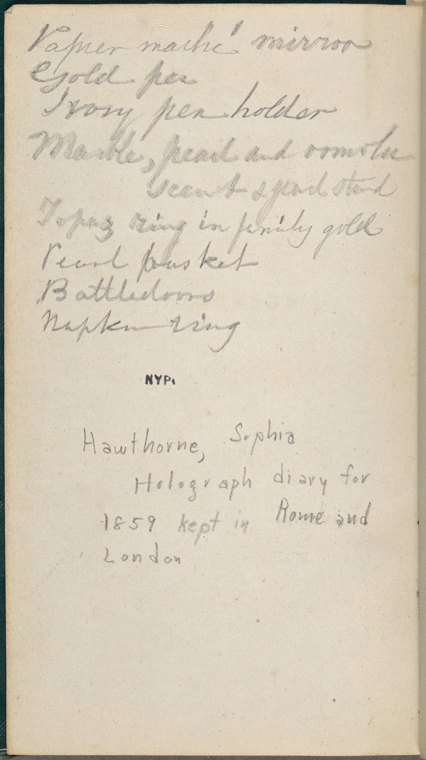 Papier maché mirror
Gold pen
Ivory pen holder
Marble, pearl and ormolu
scent & jewel stand
Topaz ring in finely gold
Pearl basket
Battledoors
Napkin ring
NYP.
Hawthorne, Sophia
Holograph diary for
1859 kept in Rome and
London